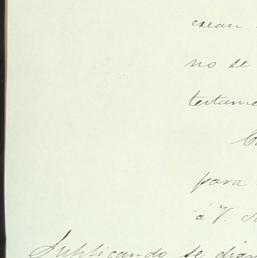 crean
no se
testame
para
á V.
Suplicando se dign